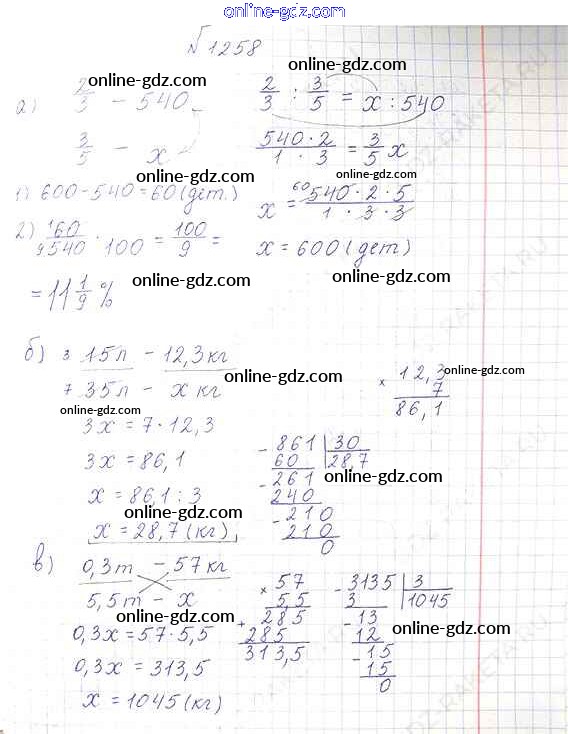 online-gdz.com
√1258
online-gdz.com
online-gdz.com
а) 2/3 – 540
2/3 : 3/5 = x : 540
3/5 – x
540·2 / 1·3 = 3/5 x
online-gdz.com
online-gdz.com
1) 600-540=60 (дет.)
x = 60 540·2·5 / 1·3·3
online-gdz.com
2) 1 60 / 9 540 · 100 = 100/9 =
x = 600 (дет)
= 11 1/9 %
online-gdz.com
online-gdz.com
б) 3 15л – 12,3кг
7 35л – x кг
online-gdz.com
× 12,3
online-gdz.com
7
86,1
online-gdz.com
3x = 7·12,3
3x = 86,1
x = 86,1 : 3
x = 28,7 (кг)
- 861 | 30
60 | 28,7
- 261
online-gdz.com
240
- 210
210
0
online-gdz.com
в) 0,3т – 57кг
5,5т – x
online-gdz.com
0,3x = 57·5,5
0,3x = 313,5
x = 1045 (кг)
× 57
5,5
+ 285
285
313,5
- 3135 | 3
3 | 1045
- 13
12
online-gdz.com
- 15
15
0
online-gdz.com
GDZ-RAKETA.RU